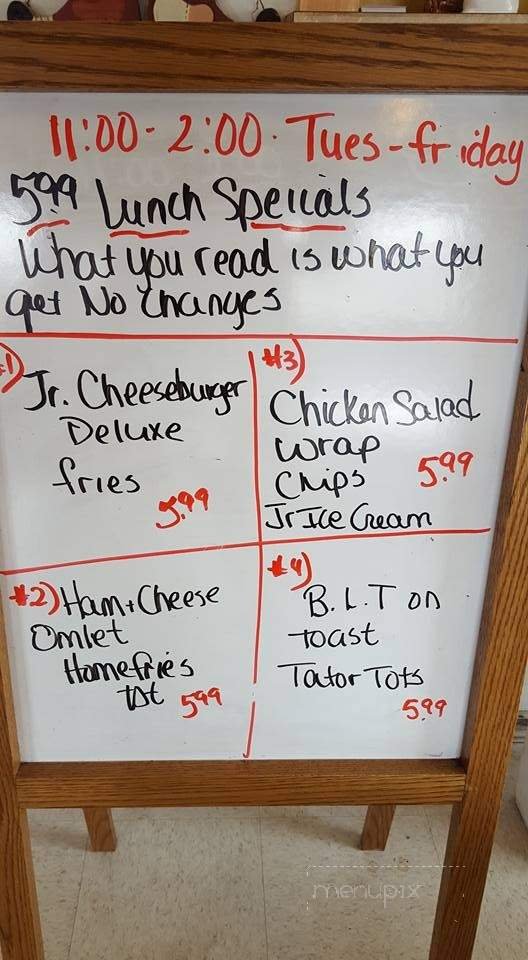 11:00 - 2:00. Tues-friday
5.99 Lunch Specials
What you read is what you
get No Changes
#1) Jr. Cheeseburger
Deluxe
fries
5.99
#3)
Chicken Salad
Wrap
Chips 5.99
Jr Ice Cream
#2) Ham + Cheese
Omlet
Homefries
tst 5.99
#4)
B.L.T on
toast
Tator Tots
5.99
menupix